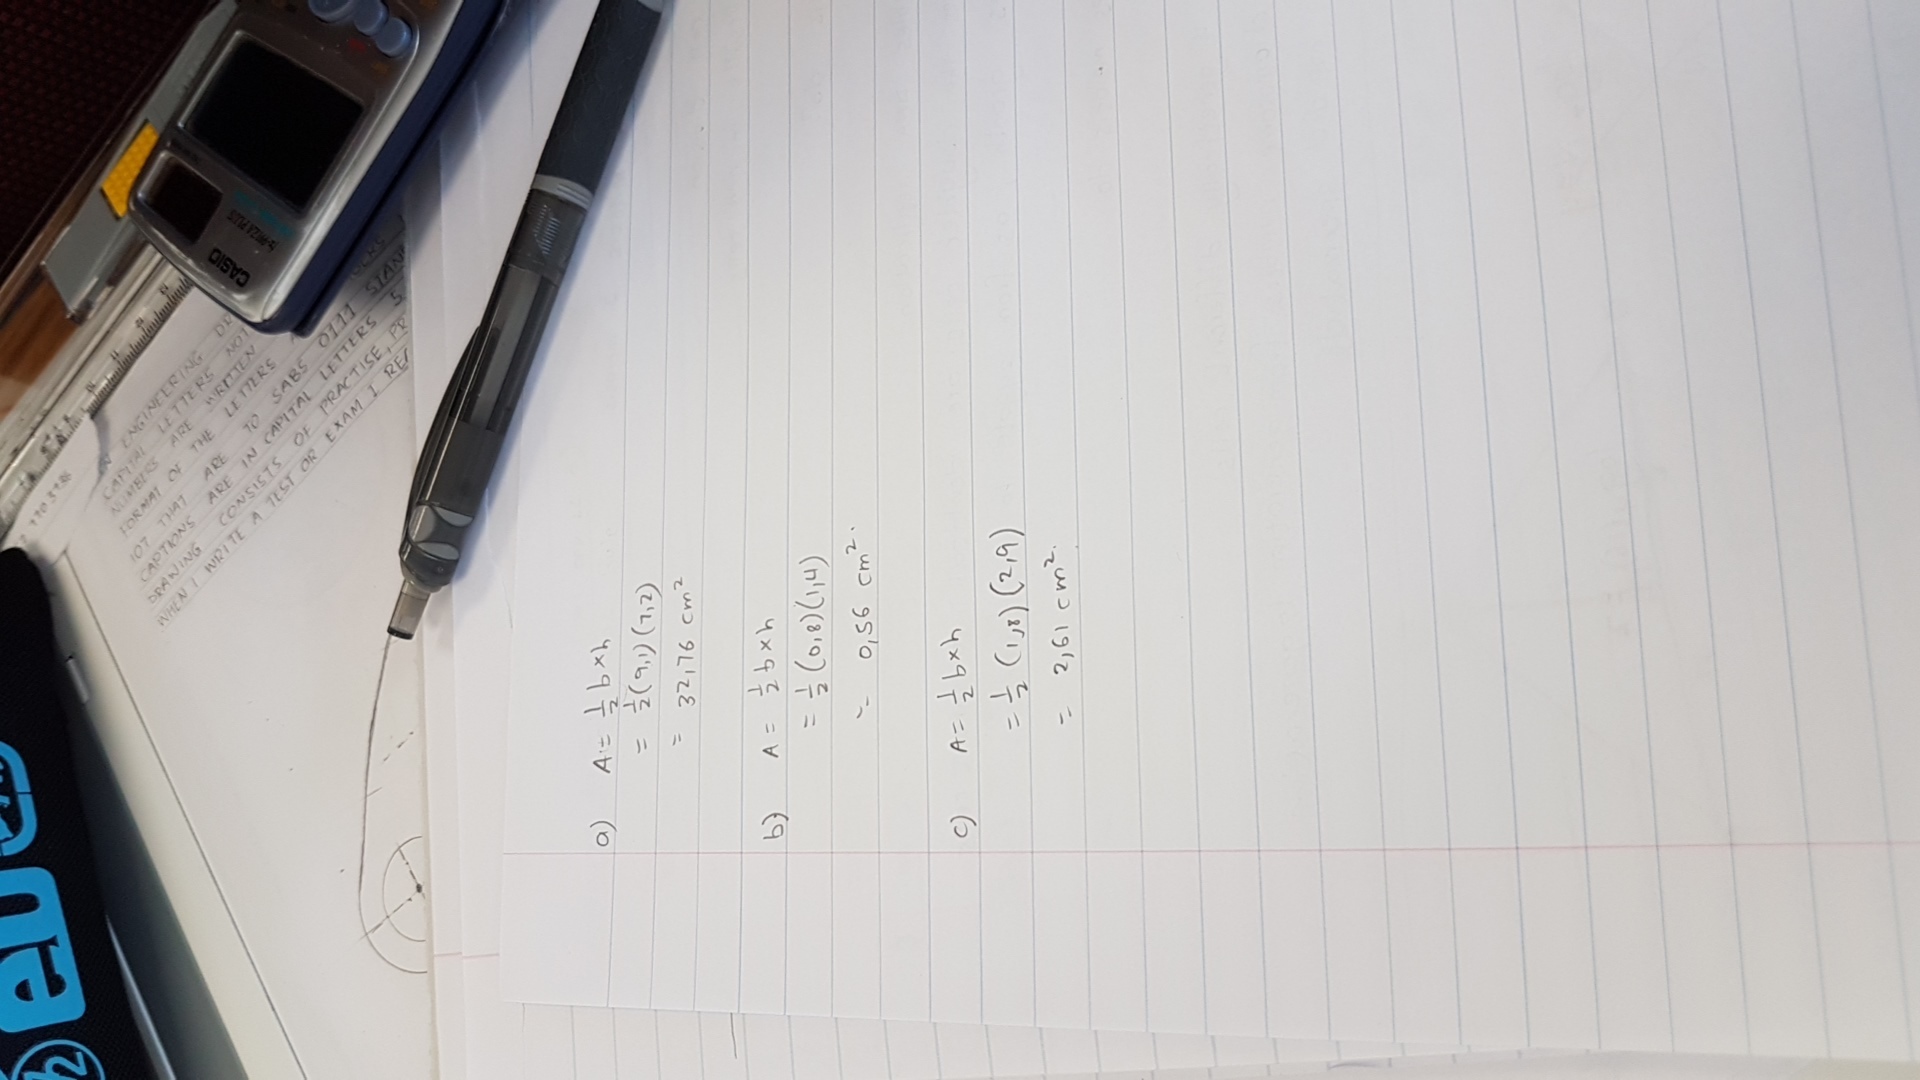 a) A = 1/2 b×h
= 1/2 (9,1) (7,2)
= 32,76 cm²
b) A = 1/2 b×h
= 1/2 (0,8) (1,4)
= 0,56 cm².
c) A = 1/2 b×h
= 1/2 (1,8) (2,9)
= 2,61 cm².
CASIO
ENGINEERING DR
CAPITAL LETTERS NOT
NUMBERS ARE WRITTEN
FORMAT OF THE LETTERS
IOT THAT ARE TO SABS 0111 STAN
CAPTIONS ARE IN CAPITAL LETTERS
DRAWING CONSISTS OF PRACTISE, PR
WHEN I WRITE A TEST OR EXAM I REA